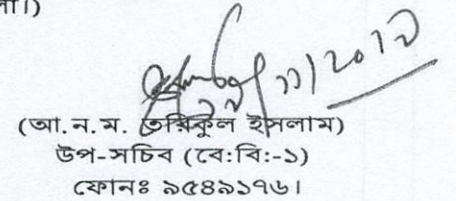 লা।)
(আ.ন.ম. তরিকুল ইসলাম)
উপ-সচিব (বে:বি:-১)
ফোনঃ ৯৫৪৯১৭৬।